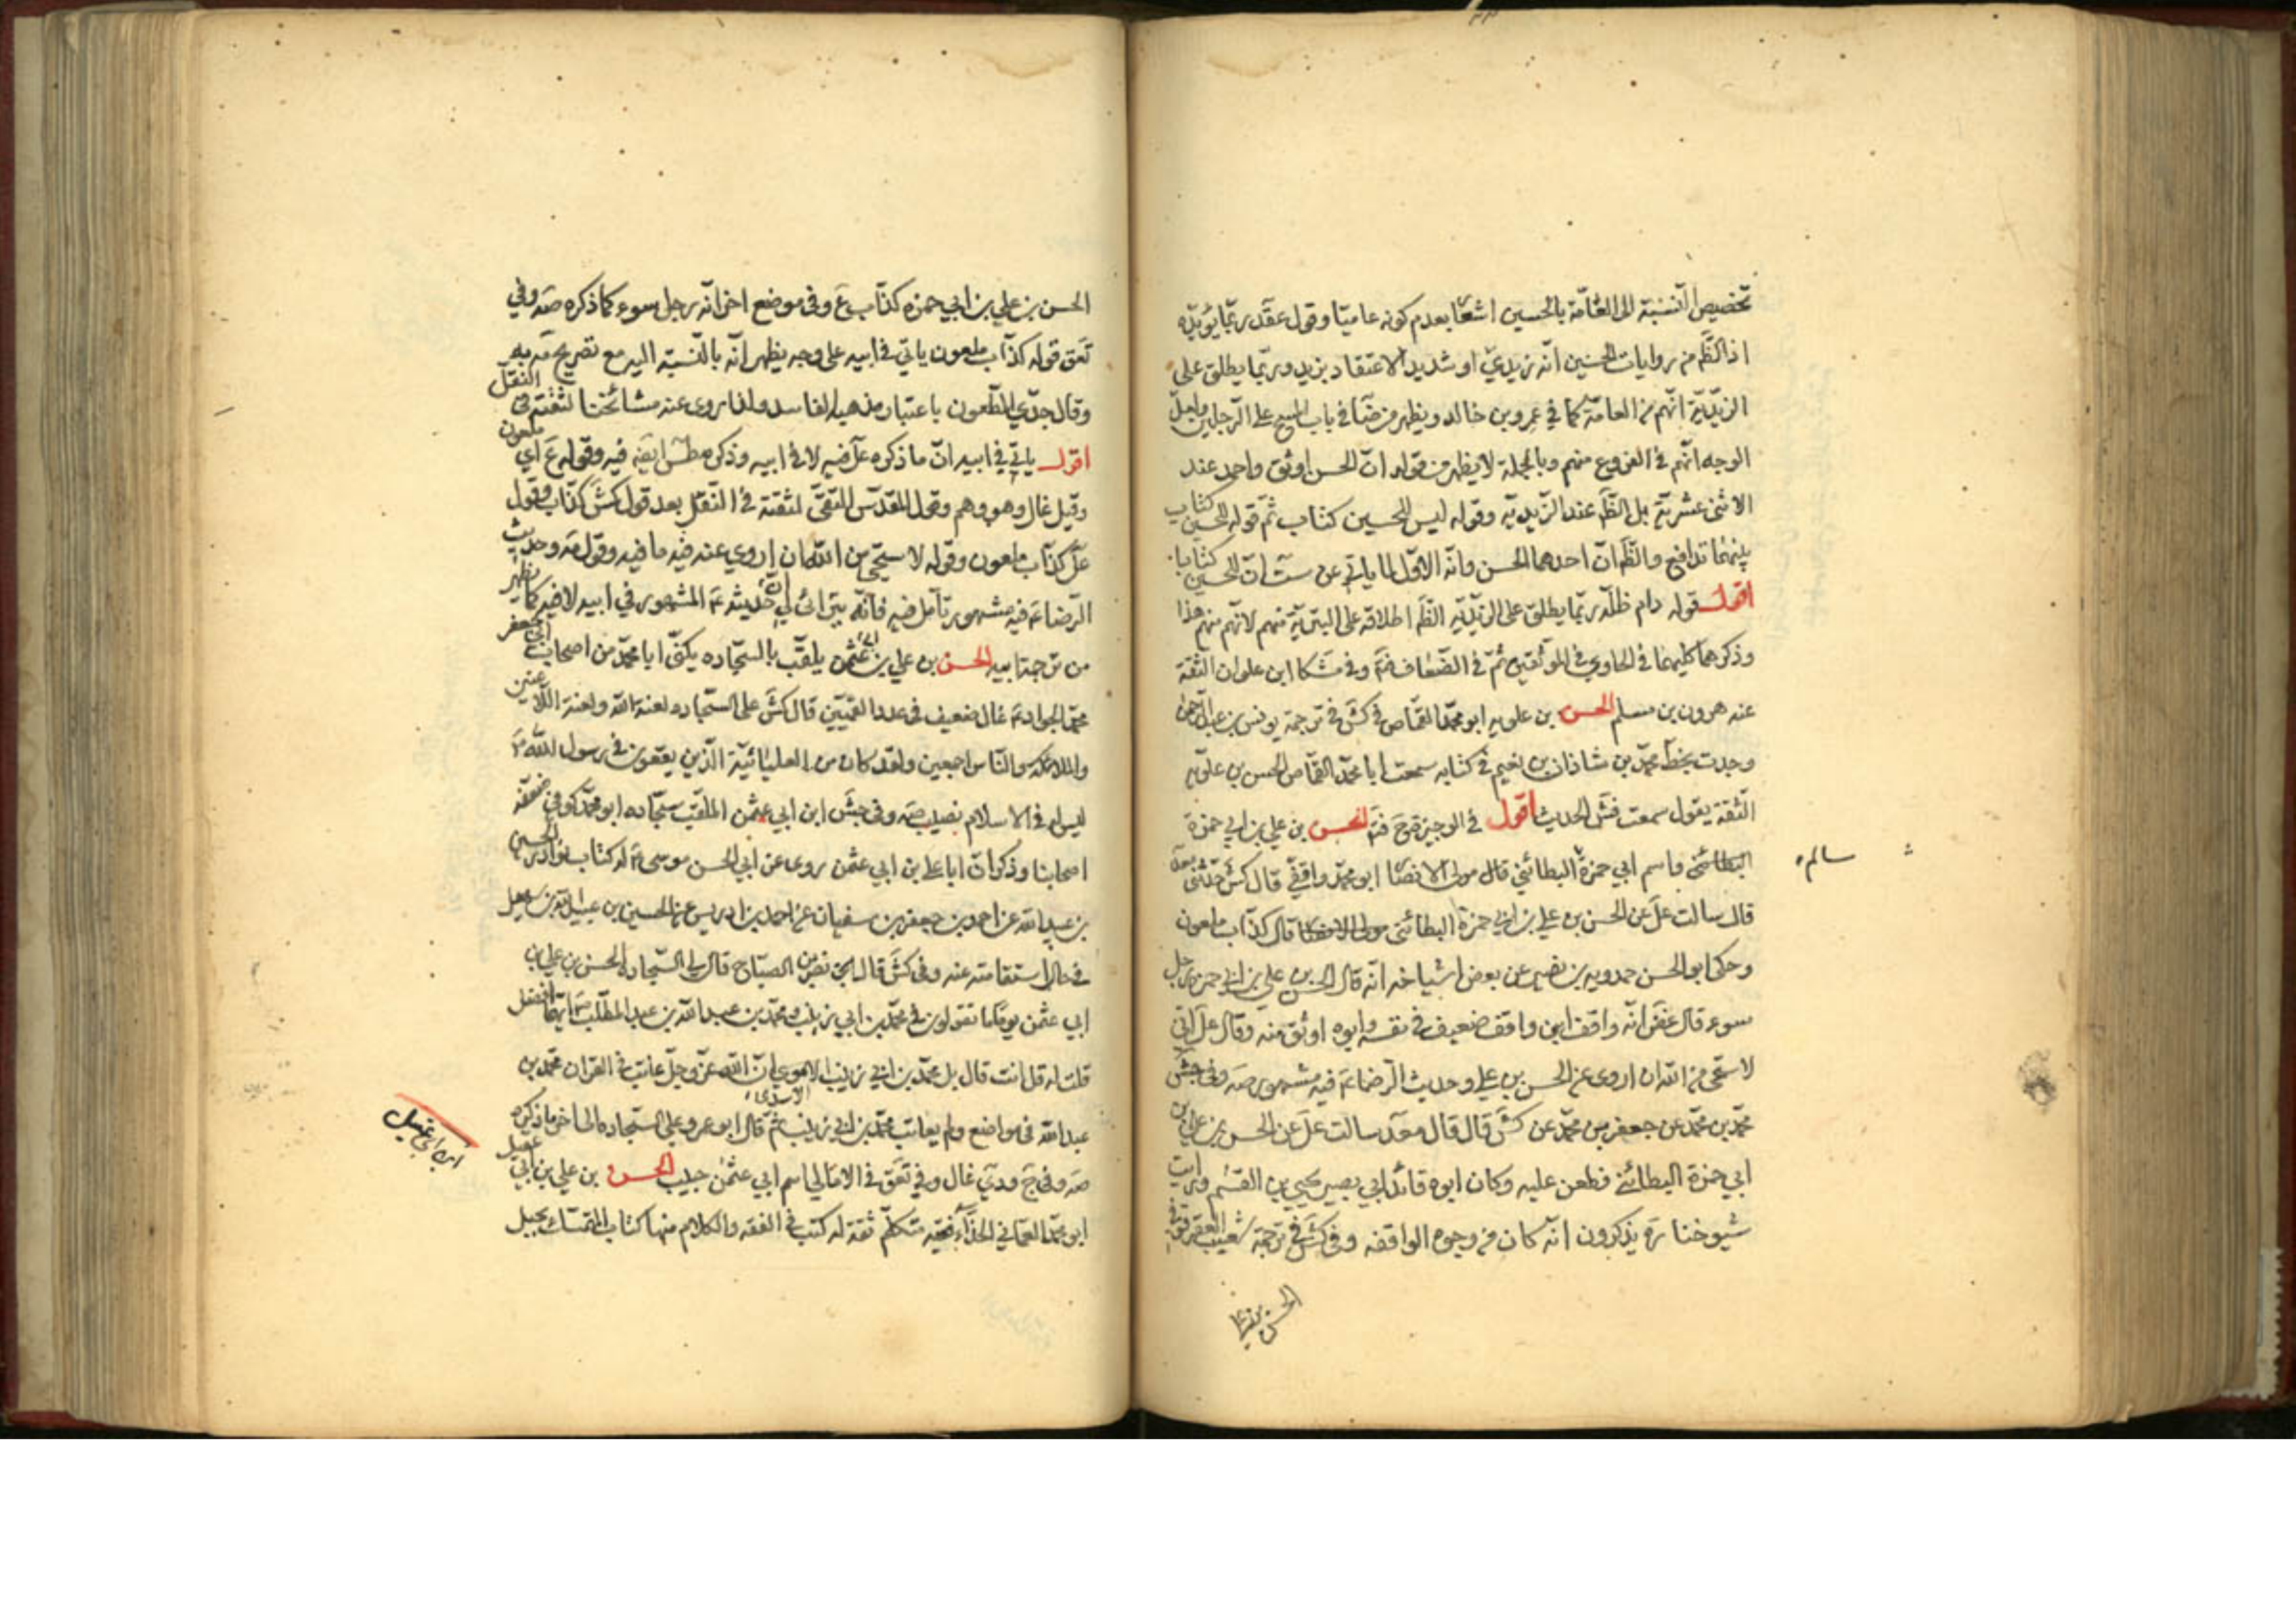 تخصيص النسبة الى العامّة بالحسين اشعا بعدم كونه عاميّا وقول عقد ربّما يؤيّده
اذ الظّم من روايات الحسين انّه زيديّ او شديد الاعتقاد بزيد وربّما يطلق على
الزيّديّة انّهم من العامّة كما في عمرو بن خالد ويظهر من ضا في باب المسح على الرّجلين ولعلّ
الوجه انّهم في الفروع منهم وبالجملة لا يظهر من قوله انّ الحسن اوثق واحمد عند
الاثنى عشريّة بل الظّم عند الزّيديه وقوله ليس للحسين كتاب ثمّ قوله للحسين كتاب
بينهما تدافع والظّم انّ احدهما الحسن وانّه الاوّل لما ياتي عن ست انّ للحسين كتابا
اقول قوله دام ظلّه ربّما يطلق على الزيّديّه الظّم اطلاقه على البتريّة منهم لانّهم منهم هذا
وذكرهما كليهما في الحاوي في الموثّقين ثمّ في الضّعاف فتم وفي مشكا ابن علوان الثقة
عنه هرون بن مسلم الحسن بن علويه ابو محمّد القمّاص في كش في ترجمة يونس بن عبد الرّحمن
وجدت بخطّ محمّد بن شاذان بن نعيم في كتابه سمعت ابا محمّد القمّاص الحسن بن علويّه
الثّقة يقول سمعت فش الحديث اقول في الوجيزة ح فتم الحسن بن علي بن ابي حمزة
البطائني واسم ابي حمزة البطائني قال مولى الانصا ابو محمّد واقفي قال كش حدّثني محمّد
سالم
قال سالت عل عن الحسن بن علي بن ابي حمزة البطائني مولى الانصا قال كذّاب ملعون
وحكى ابو الحسن حمدويه بن نصير عن بعض اشياخه انّه قال الحسن بن علي بن ابي حمزة رجل
سوء قال غض انّه واقف ابن واقف ضعيف في نفسه وابوه اوثق منه وقال عل انّي
لا ستحى من الله ان اروى عن الحسن بن علي وحديث الرّضا ع فيه مشهور صه وفي جش
محمّد بن محمّد عن جعفر بن محمّد عن كش قال قال محمّد سالت عل عن الحسن بن علي بن
ابي حمزة البطائني فطعن عليه وكان ابوه قائد ابي بصير يحيى بن القسم ورايت
شيوخنا ره يذكرون انّه كان من وجوه الواقفه وفي كش في ترجمة شعيب العقرقوفي
الحسن بن علي
الحسن بن علي بن ابي حمزه كذّاب غ وفى موضع اخر انّه رجل سوء كما ذكره صه وفي
تعق قوله كذّاب ملعون ياتي في ابيه على وجه يظهر انّه بالنّسبة اليه مع تصريح مّه به
وقال جدّي الطّعون باعتبار مذهبه الفاسد ولذا روى عنه مشائخنا لثقته في النقل
اقول ياتي في ابيه انّ ما ذكره عل فيه لا في ابيه وذكره طس ايضه فيه وقوله غ اي ملعون
وقيل غال وهو وهم وقول المقدّس التّقيّ لثقته في النّقل بعد قول كش كذّاب وقول
عل كذّاب ملعون وقوله لا ستحى من الله ان اروي عنه فيه ما فيه وقول مه وحديث
الرّضا ع فيه مشهور تأمّل فيه فانّه يترائى لي انّ حديثه ع المشهور في ابيه لا فيه كما يظهر
من ترجمة ابيه الحسن بن علي بن عثمن يلقّب بالسجّاده يكنّى ابا محمّد من اصحاب ابي جعفر
محمّد الجواد ع غال ضعيف في عدد القميّين قال كش على السجّاده لعنة الله ولعنة اللّاعنين
والملائكه والنّاس اجمعين ولقد كان من العليائيّة الّذين يقعون في رسول الله ص
ليس له في الاسلام نصيب صه وفى جش ابن ابي عثمن الملقّب سجّاده ابو محمّد كوفي ضعّفه
اصحابنا وذكر انّ اباه علي بن ابي عثمن روى عن ابي الحسن موسى ع له كتاب نوادر الحسين
بن عبيد الله عن احمد بن جعفر بن سفيان عن احمد بن ادريس عن الحسين بن عبيد الله بن سهل
في حال استقامته عنه وفى كش قال نصر بن الصبّاح قال لي السجّاده الحسن بن علي بن
ابي عثمن يوما ما تقولون في محمّد بن ابي زينب ومحمّد بن عبد الله بن عبد المطّلب ص ايّهما افضل
قلت له قل انت قال بل محمّد بن ابي زينب الا ان الله عزّ وجلّ عاتب في القرآن محمّد بن
الاسدي
عبد الله في مواضع ولم يعاتب محمّد بن ابي زينب ثمّ قال ابو عمرو على السجّاده الى اخر ما ذكره
صه وفى ج ودي غال وفي تعق في الامالي اسم ابي عثمن حبيب الحسن بن علي بن ابي عقيل
ابن ابي عقيل
ابو محمّد العماني الحذّاء فقيه متكلّم ثقة له كتب في الفقه والكلام منها كتاب المتمسّك بحبل